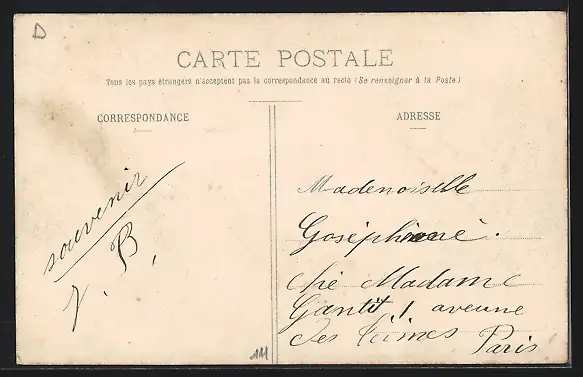 D
CARTE POSTALE
Tous les pays étrangers n'acceptent pas la correspondance au recto (Se renseigner à la Poste)
CORRESPONDANCE
ADRESSE
souvenir
V. B,
Mademoiselle
Goséphine.
Madame
Gantit, 1 avenue
des
Paris
111